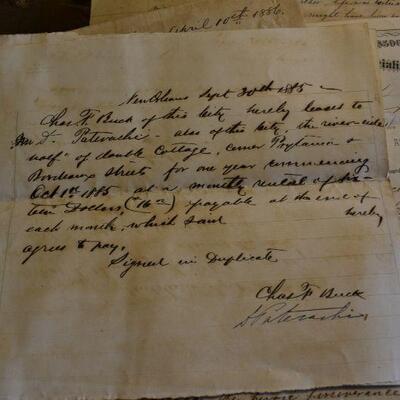 April 10th 1886.
$500
New Orleans Sept 30th 1885
Chas F. Buck of this City hereby leases to
D. Patorachi - also of this City, the river-side
half of double Cottage, corner Prytania &
Bordeaux Streets for one year commencing
Oct 1st 1885 at a monthly rental of Six-
teen Dollars, (16 00) payable at the end of
each month, which said hereby
agrees to pay.
Signed in Duplicate
Chas F Buck